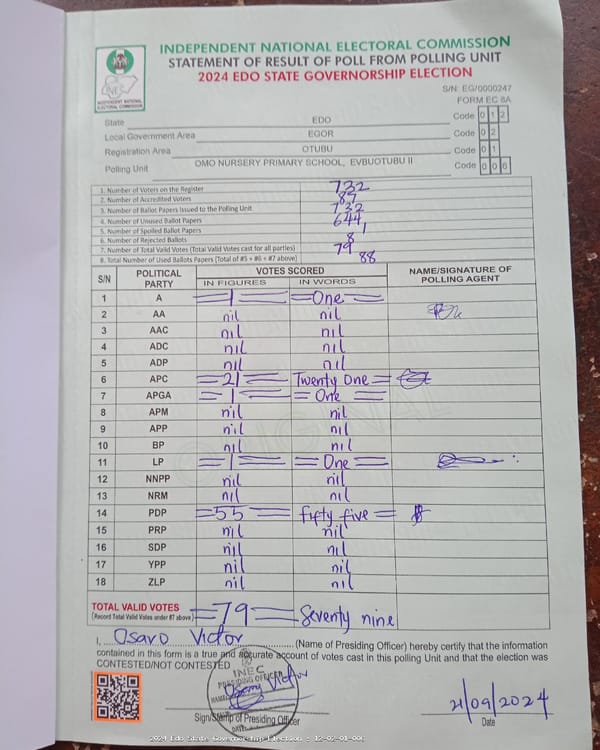 INDEPENDENT NATIONAL ELECTORAL COMMISSION
STATEMENT OF RESULT OF POLL FROM POLLING UNIT
2024 EDO STATE GOVERNORSHIP ELECTION
INEC
INDEPENDENT NATIONAL ELECTORAL COMMISSION
S/N: EG/0000247
FORM EC 8A
State EDO Code 0 1 2
Local Government Area EGOR Code 0 2
Registration Area OTUBU Code 0 1
Polling Unit OMO NURSERY PRIMARY SCHOOL, EVBUOTUBU II Code 0 0 6
1. Number of Voters on the Register 732
2. Number of Accredited Voters 89
3. Number of Ballot Papers Issued to the Polling Unit 732
4. Number of Unused Ballot Papers 644
5. Number of Spoiled Ballot Papers 1
6. Number of Rejected Ballots 8
7. Number of Total Valid Votes (Total Valid Votes cast for all parties) 79
8. Total Number of Used Ballots Papers (Total of #5 + #6 + #7 above) 88
S/N POLITICAL PARTY VOTES SCORED NAME/SIGNATURE OF POLLING AGENT
IN FIGURES IN WORDS
1 A 1 One
2 AA nil nil
3 AAC nil nil
4 ADC nil nil
5 ADP nil nil
6 APC 21 Twenty One
7 APGA 1 One
8 APM nil nil
9 APP nil nil
10 BP nil nil
11 LP 1 One
12 NNPP nil nil
13 NRM nil nil
14 PDP 55 fifty five
15 PRP nil nil
16 SDP nil nil
17 YPP nil nil
18 ZLP nil nil
TOTAL VALID VOTES 79 Seventy nine
(Record Total Valid Votes under #7 above)
I, Osaro Victor (Name of Presiding Officer) hereby certify that the information
contained in this form is a true and accurate account of votes cast in this polling Unit and that the election was
CONTESTED/NOT CONTESTED
INEC
PRESIDING OFFICER
Victor
Sign/Stamp of Presiding Officer
DATE
21/09/2024
Date
2024 Edo State Governorship Election - 12-02-01-006